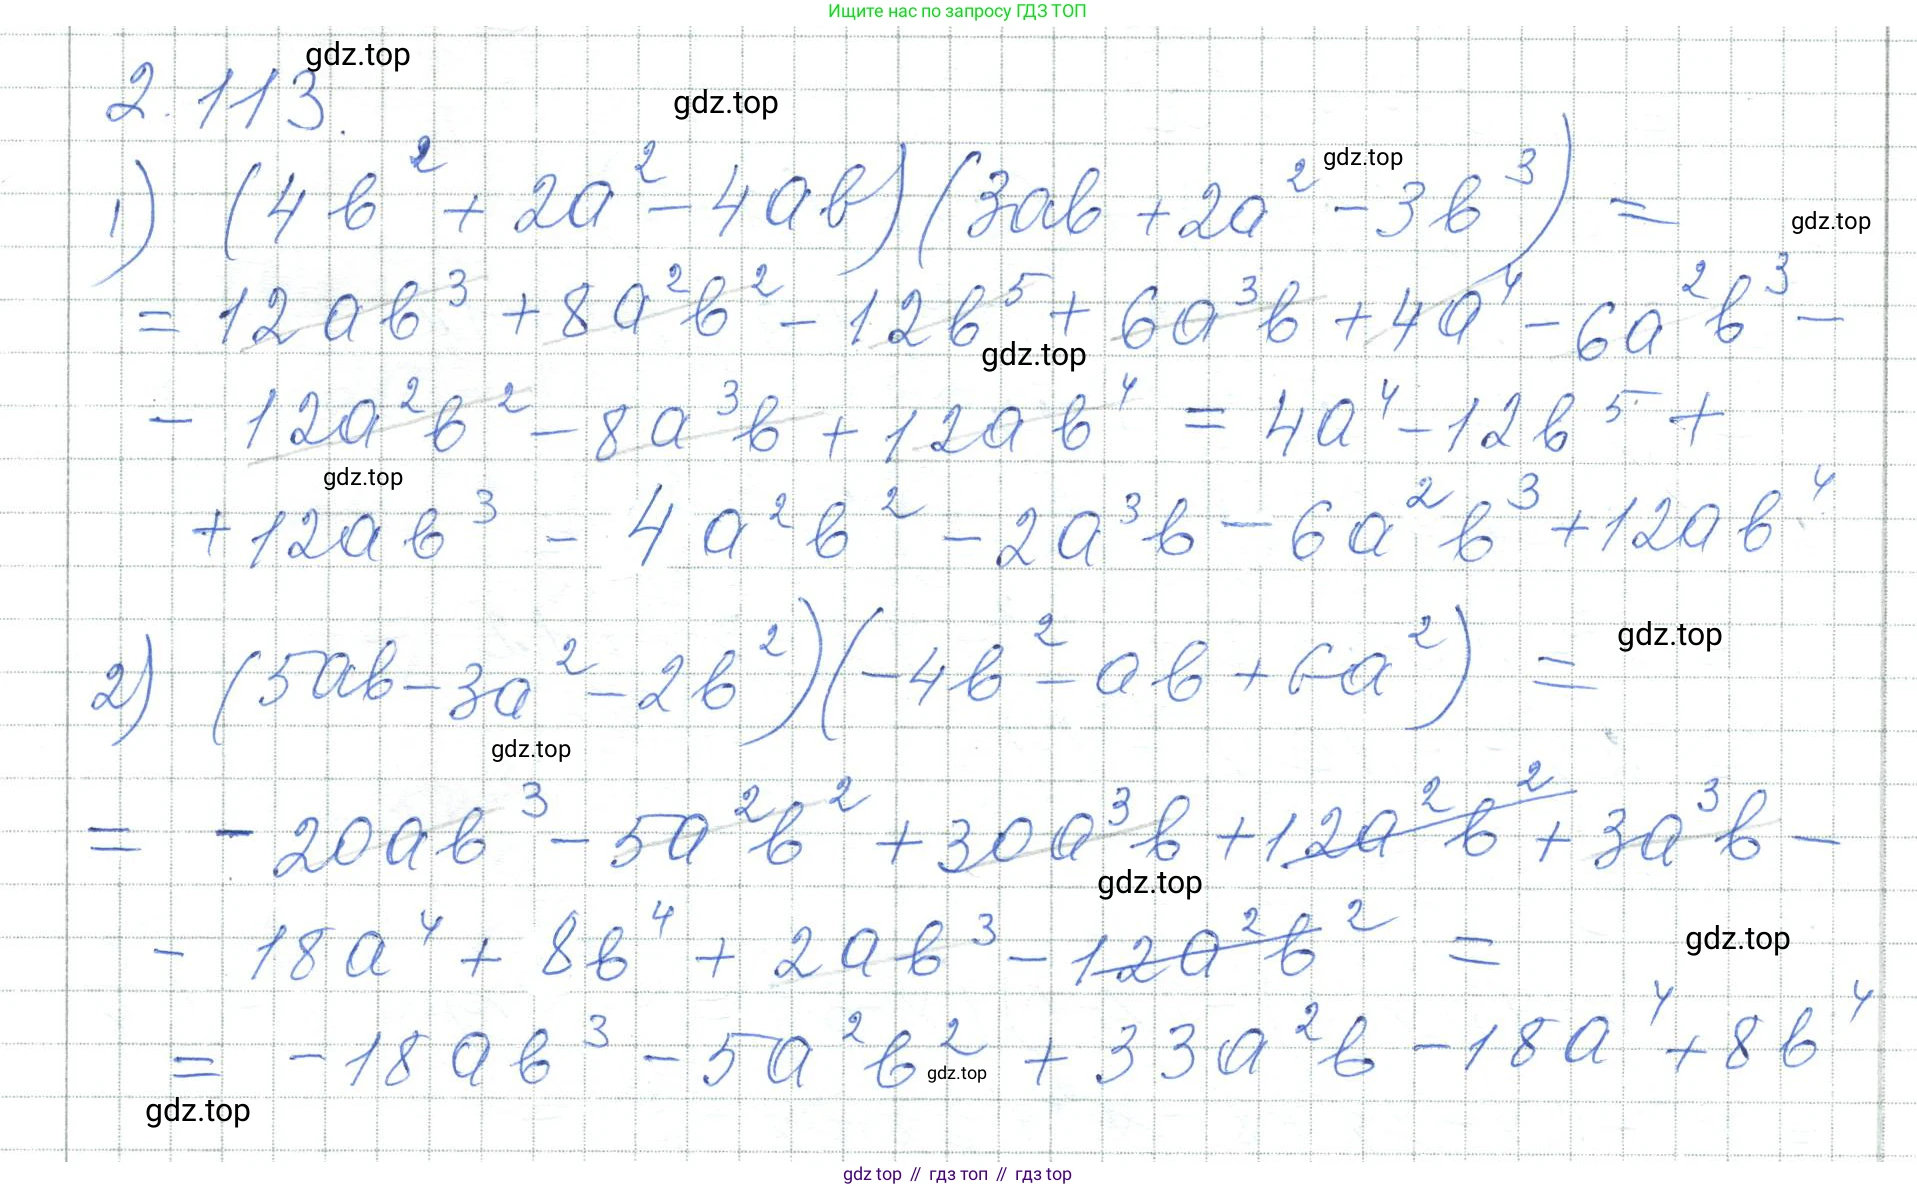 Ищите нас по запросу ГДЗ ТОП
gdz.top
2.113.
gdz.top
1) (4b² + 2a² - 4ab)(3ab + 2a² - 3b³) =
gdz.top
gdz.top
= 12ab³ + 8a²b² - 12b⁵ + 6a³b + 4a⁴ - 6a²b³ -
gdz.top
- 12a²b² - 8a³b + 12ab⁴ = 4a⁴ - 12b⁵ +
gdz.top
+ 12ab³ - 4a²b² - 2a³b - 6a²b³ + 12ab⁴
gdz.top
2) (5ab - 3a² - 2b²)(-4b² - ab + 6a²) =
gdz.top
= - 20ab³ - 5a²b² + 30a³b + 12a²b² + 3a³b -
gdz.top
- 18a⁴ + 8b⁴ + 2ab³ - 12a²b² =
gdz.top
= - 18ab³ - 5a²b² + 33a²b - 18a⁴ + 8b⁴
gdz.top
gdz.top
gdz top // гдз топ // гдз top